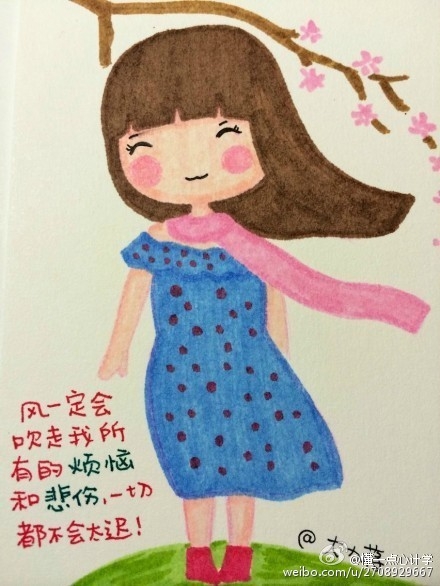 风一定会
吹走我所
有的烦恼
和悲伤，一切
都不会太迟！
@
@懂一点心计学
weibo.com/u/2708929667